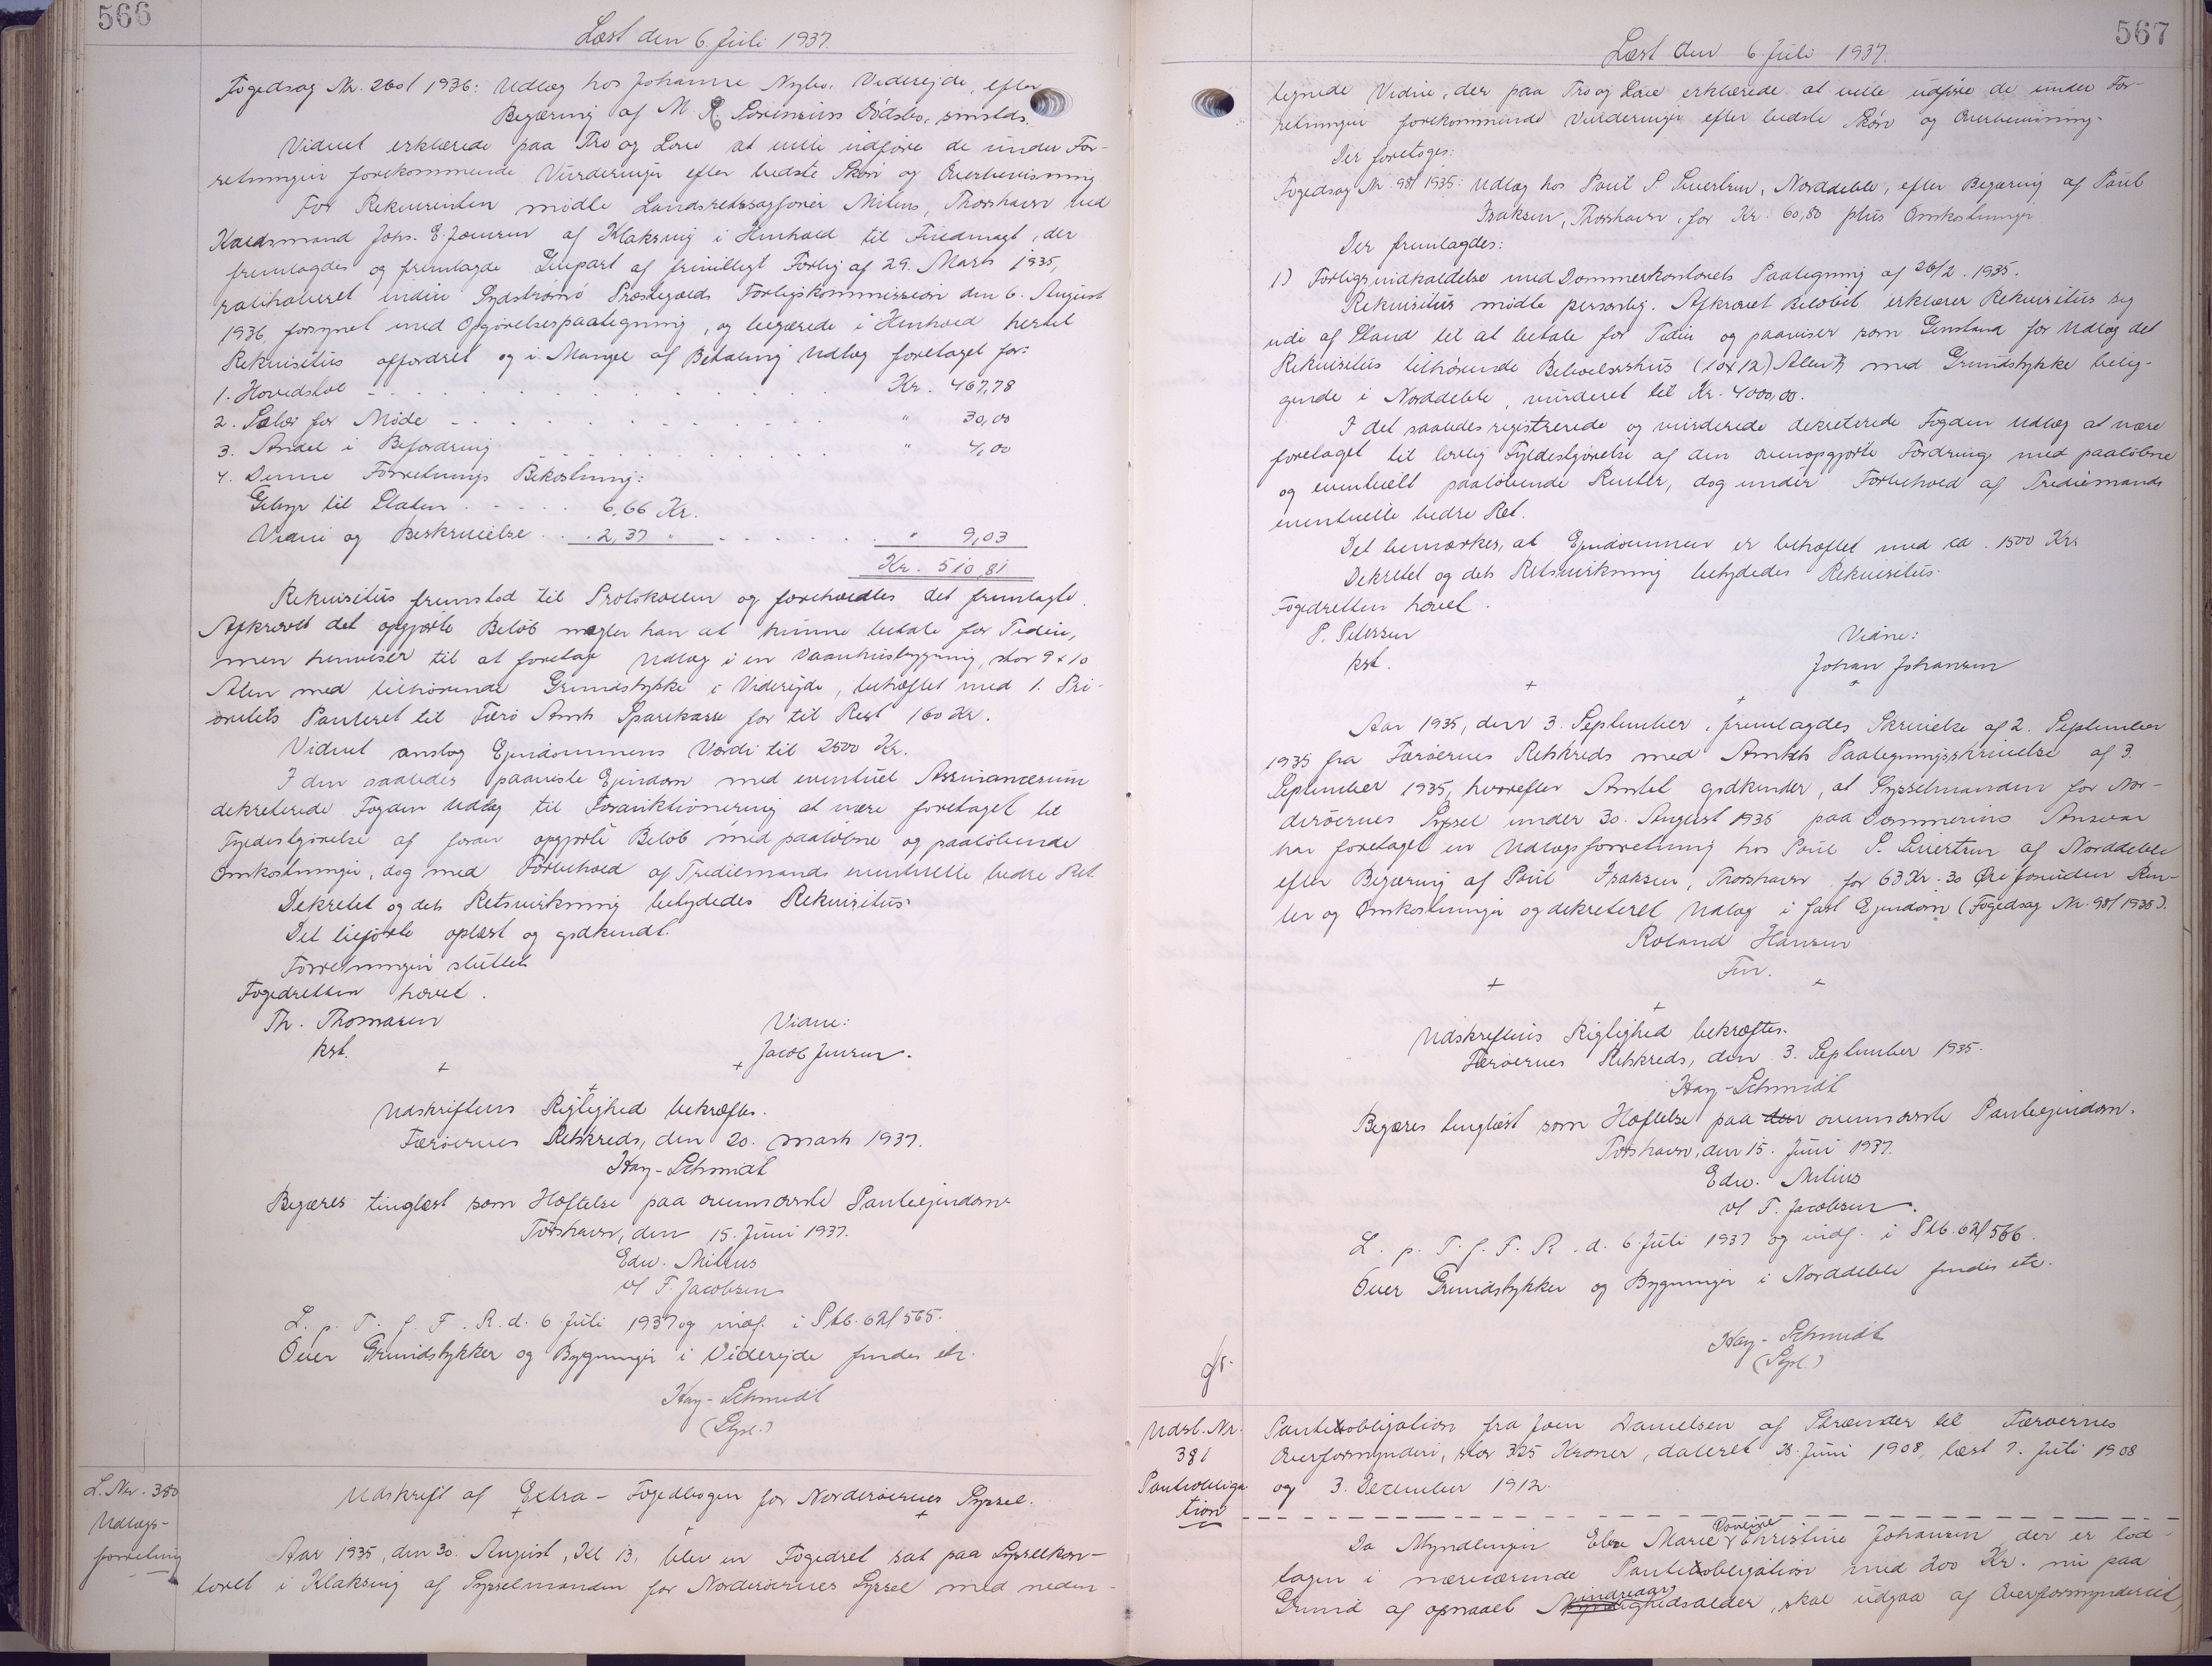 566
Læst den 6. Juli 1937.
Fogedsag Nr. 260/1936: Udlæg hos Johanne Nybo, Viderejde, efter
Begæring af M. R. Sørensens Dødsbo, smstds.
Vidnet erklærede paa Tro og Love at ville udføre de under For-
retningen forekommende Vurderinger efter bedste Skøn og Overbevisning
For Rekvirenten mødte Landsretssagfører Milius, Thorshavn ved
Kredsmand Johs. E. Joensen af Klaksvig i Henhold til Fuldmagt, der
fremlagdes og fremlagde Genpart af frivilligt Forlig af 29. Marts 1935,
ratihaberet inden Sydstrømø Præstegælds Forligskommission den 6. August
1936 forsynet med Opgørelsespaategning, og begærede i Henhold hertil
Rekvisitus opfordret og i Mangel af Betaling Udlæg foretaget for:
1. Hovedstol Kr. 467,78
2. Salær for Møde " 30,00
3. Andel i Befordring " 4,00
4. Denne Forretnings Bekostning:
Gebyr til Staten 6,66 Kr.
Vidne og Beskrivelse 2,37 " " 9,03
Kr. 510,81
Rekvisitus fremstod til Protokollen og foreholdtes det fremlagte.
Afkrævet det opgjorte Beløb nægter han at kunne betale for Tiden,
men henviser til at foretage Udlæg i en Vaaanhusbygning, stor 9 x 10
Alen med tilhørende Grundstykke i Viderejde, behæftet med 1. Pri-
oritets Panteret til Færø Amts Sparekasse for til Rest 160 Kr.
Vidnet anslog Ejendommens Værdi til 2500 Kr.
I den saaledes paaviste Ejendom med eventuel Assurancesum
dekreterede Fogden Udlæg til Forauktionering at være foretaget til
Fyldestgørelse af foran opgjorte Beløb med paaløbne og paaløbende
Omkostninger, dog med Forbehold af Trediemands eventuelle bedre Ret
Dekretet og dets Retsvirkning betydedes Rekvisitus.
Det tilførte oplæst og godkendt.
Forretningen sluttet.
Fogedretten hævet.
Th. Thomasen Vidne:
kst. Jacob Jensen.
+ + +
Udskriftens Rigtighed bekræftes.
Færøernes Retskreds, den 20. marts 1937.
Hay-Schmidt
Begæres tinglæst som Hæftelse paa ovennævnte Panteejendom.
Tórshavn, den 15. Juni 1937.
Edw. Milius
v/ T. Jacobsen
L. p. T. f. F. R. d. 6 Juli 1937 og indf. i Skb. 62/565.
Over Grundstykker og Bygninger i Viderejde findes etc.
Hay-Schmidt
(Stpl.)
L. Nr. 380
Udlægs-
forretning
Udskrift af Extra-Fogedbogen for Norderøernes Syssel.
+ + +
Aar 1935, den 30. August, Kl. 13, blev en Fogedret sat paa Sysselkon-
toret i Klaksvig af Sysselmanden for Norderøernes Syssel med neden-
567
Læst den 6. Juli 1937.
tegnede Vidne, der paa Tro og Love erklærede at ville udføre de under For-
retningen forekommende Vurderinger efter bedste Skøn og Overbevisning.
Der foretoges:
Fogedsag Nr. 98/1935: Udlæg hos Poul S. Sivertsen, Norddeble, efter Begæring af Poul
Isaksen, Thorshavn, for Kr. 60,80 plus Omkostninger.
Der fremlagdes:
1) Forligsindkaldelse med Dommerkontorets Paategning af 26/2. 1935.
Rekvisitus mødte personlig. Afkrævet Beløbet erklærer Rekvisitus sig
ude af Stand til at betale for Tiden og paaviser som Genstand for Udlæg det
Rekvisitus tilhørende Beboelseshus (10x12) Alen med Grundstykke belig-
gende i Norddeble, vurderet til Kr. 4000,00.
I det saaledes registrerede og vurderede dekreterede Fogden Udlæg at være
foretaget til lovlig Fyldestgørelse af den ovenopgjorte Fordring med paaløbne
og eventuelt paaløbende Renter, dog under Forbehold af Trediemands
eventuelle bedre Ret.
Det bemærkes, at Ejendommen er behæftet med ca. 1500 Kr.
Dekretet og dets Retsvirkning betydedes Rekvisitus.
Fogedretten hævet.
P. Petersen Vidne:
kst. Johan Johansen
+ + +
Aar 1935, den 3. September, fremlagdes Skrivelse af 2. September
1935 fra Færøernes Retskreds med Amtets Paategningsskrivelse af 3.
September 1935, hvorefter Amtet godkender, at Sysselmanden for Nor-
derøernes Syssel under 30. August 1935 paa Dommerens Ansvar
har foretaget en Udlægsforretning hos Poul S. Sivertsen af Norddeble
efter Begæring af Poul Isaksen, Thorshavn for 63 Kr. 30 Øre foruden Ren-
ter og Omkostninger og dekreteret Udlæg i fast Ejendom (Fogedsag Nr. 98/1935).
Roland Hansen
Fm.
+ + +
Udskriftens Rigtighed bekræftes.
Færøernes Retskreds, den 3. September 1935.
Hay-Schmidt
Begæres tinglæst som Hæftelse paa den ovennævnte Panteejendom.
Tórshavn, den 15. Juni 1937.
Edw. Milius
v/ T. Jacobsen.
L. p. T. f. F. R. d. 6 Juli 1937 og indf. i Skb. 62/566.
Over Grundstykker og Bygninger i Norddeble findes etc.
Hay-Schmidt
(Stpl.)
Udsl. Nr.
381
Panteobliga
tion
Panteobligation fra Joen Danielsen af Strænder til Færøernes
Overformynderi, stor 325 Kroner, dateret 28. Juni 1908, læst 7. Juli 1908
og 3. December 1912.
Da Myndlingen Else Marie Pouline Christine Johansen, der er lod-
tagen i nærværende Panteobligation med 200 Kr. nu paa
Grund af opnaaet Myndighedsalder, skal udgaa af Overformynderiet,